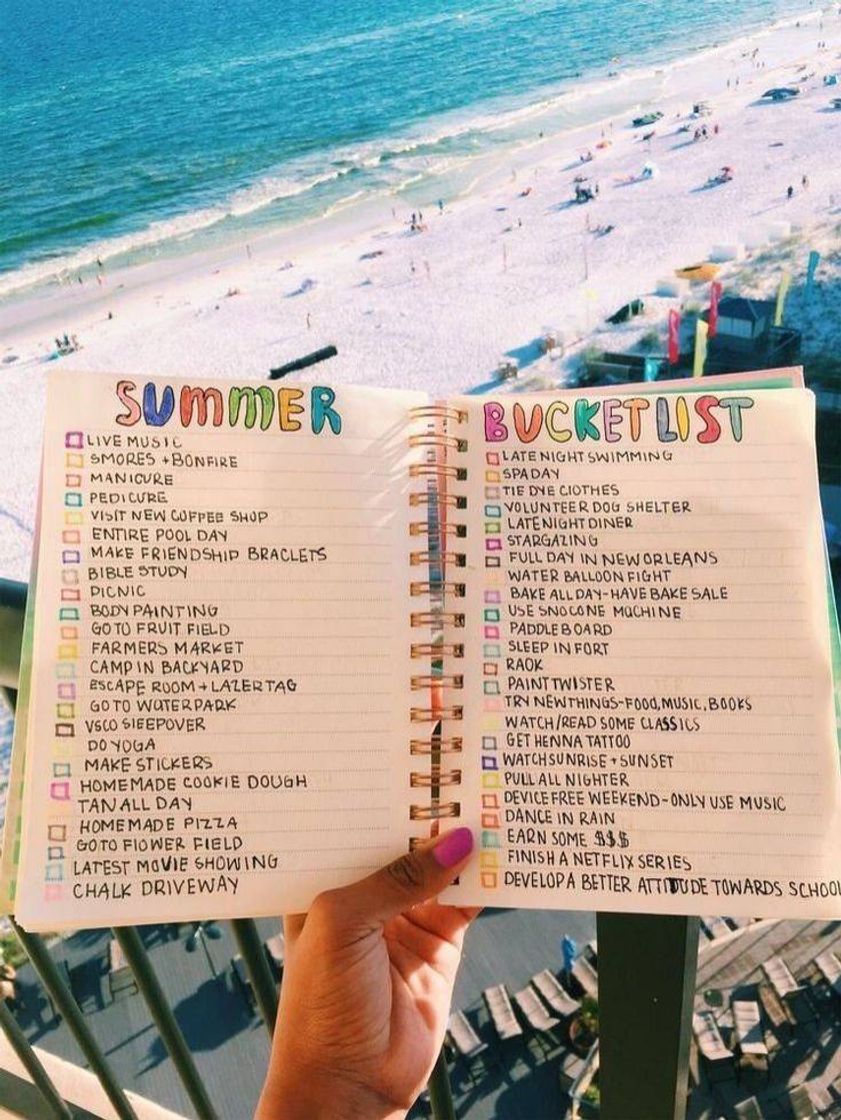 SUMMER
LIVE MUSIC
SMORES + BONFIRE
MANICURE
PEDICURE
VISIT NEW COFFEE SHOP
ENTIRE POOL DAY
MAKE FRIENDSHIP BRACLETS
BIBLE STUDY
PICNIC
BODY PAINTING
GO TO FRUIT FIELD
FARMERS MARKET
CAMP IN BACKYARD
ESCAPE ROOM + LAZER TAG
GO TO WATERPARK
VSCO SLEEPOVER
DO YOGA
MAKE STICKERS
HOMEMADE COOKIE DOUGH
TAN ALL DAY
HOMEMADE PIZZA
GO TO FLOWER FIELD
LATEST MOVIE SHOWING
CHALK DRIVEWAY
BUCKET LIST
LATE NIGHT SWIMMING
SPA DAY
TIE DYE CLOTHES
VOLUNTEER DOG SHELTER
LATE NIGHT DINER
STARGAZING
FULL DAY IN NEW ORLEANS
WATER BALLOON FIGHT
BAKE ALL DAY - HAVE BAKE SALE
USE SNOCONE MACHINE
PADDLEBOARD
SLEEP IN FORT
RAOK
PAINT TWISTER
TRY NEW THINGS - FOOD, MUSIC, BOOKS
WATCH/READ SOME CLASSICS
GET HENNA TATTOO
WATCH SUNRISE + SUNSET
PULL ALL NIGHTER
DEVICE FREE WEEKEND - ONLY USE MUSIC
DANCE IN RAIN
EARN SOME $$$
FINISH A NETFLIX SERIES
DEVELOP A BETTER ATTITUDE TOWARDS SCHOOL